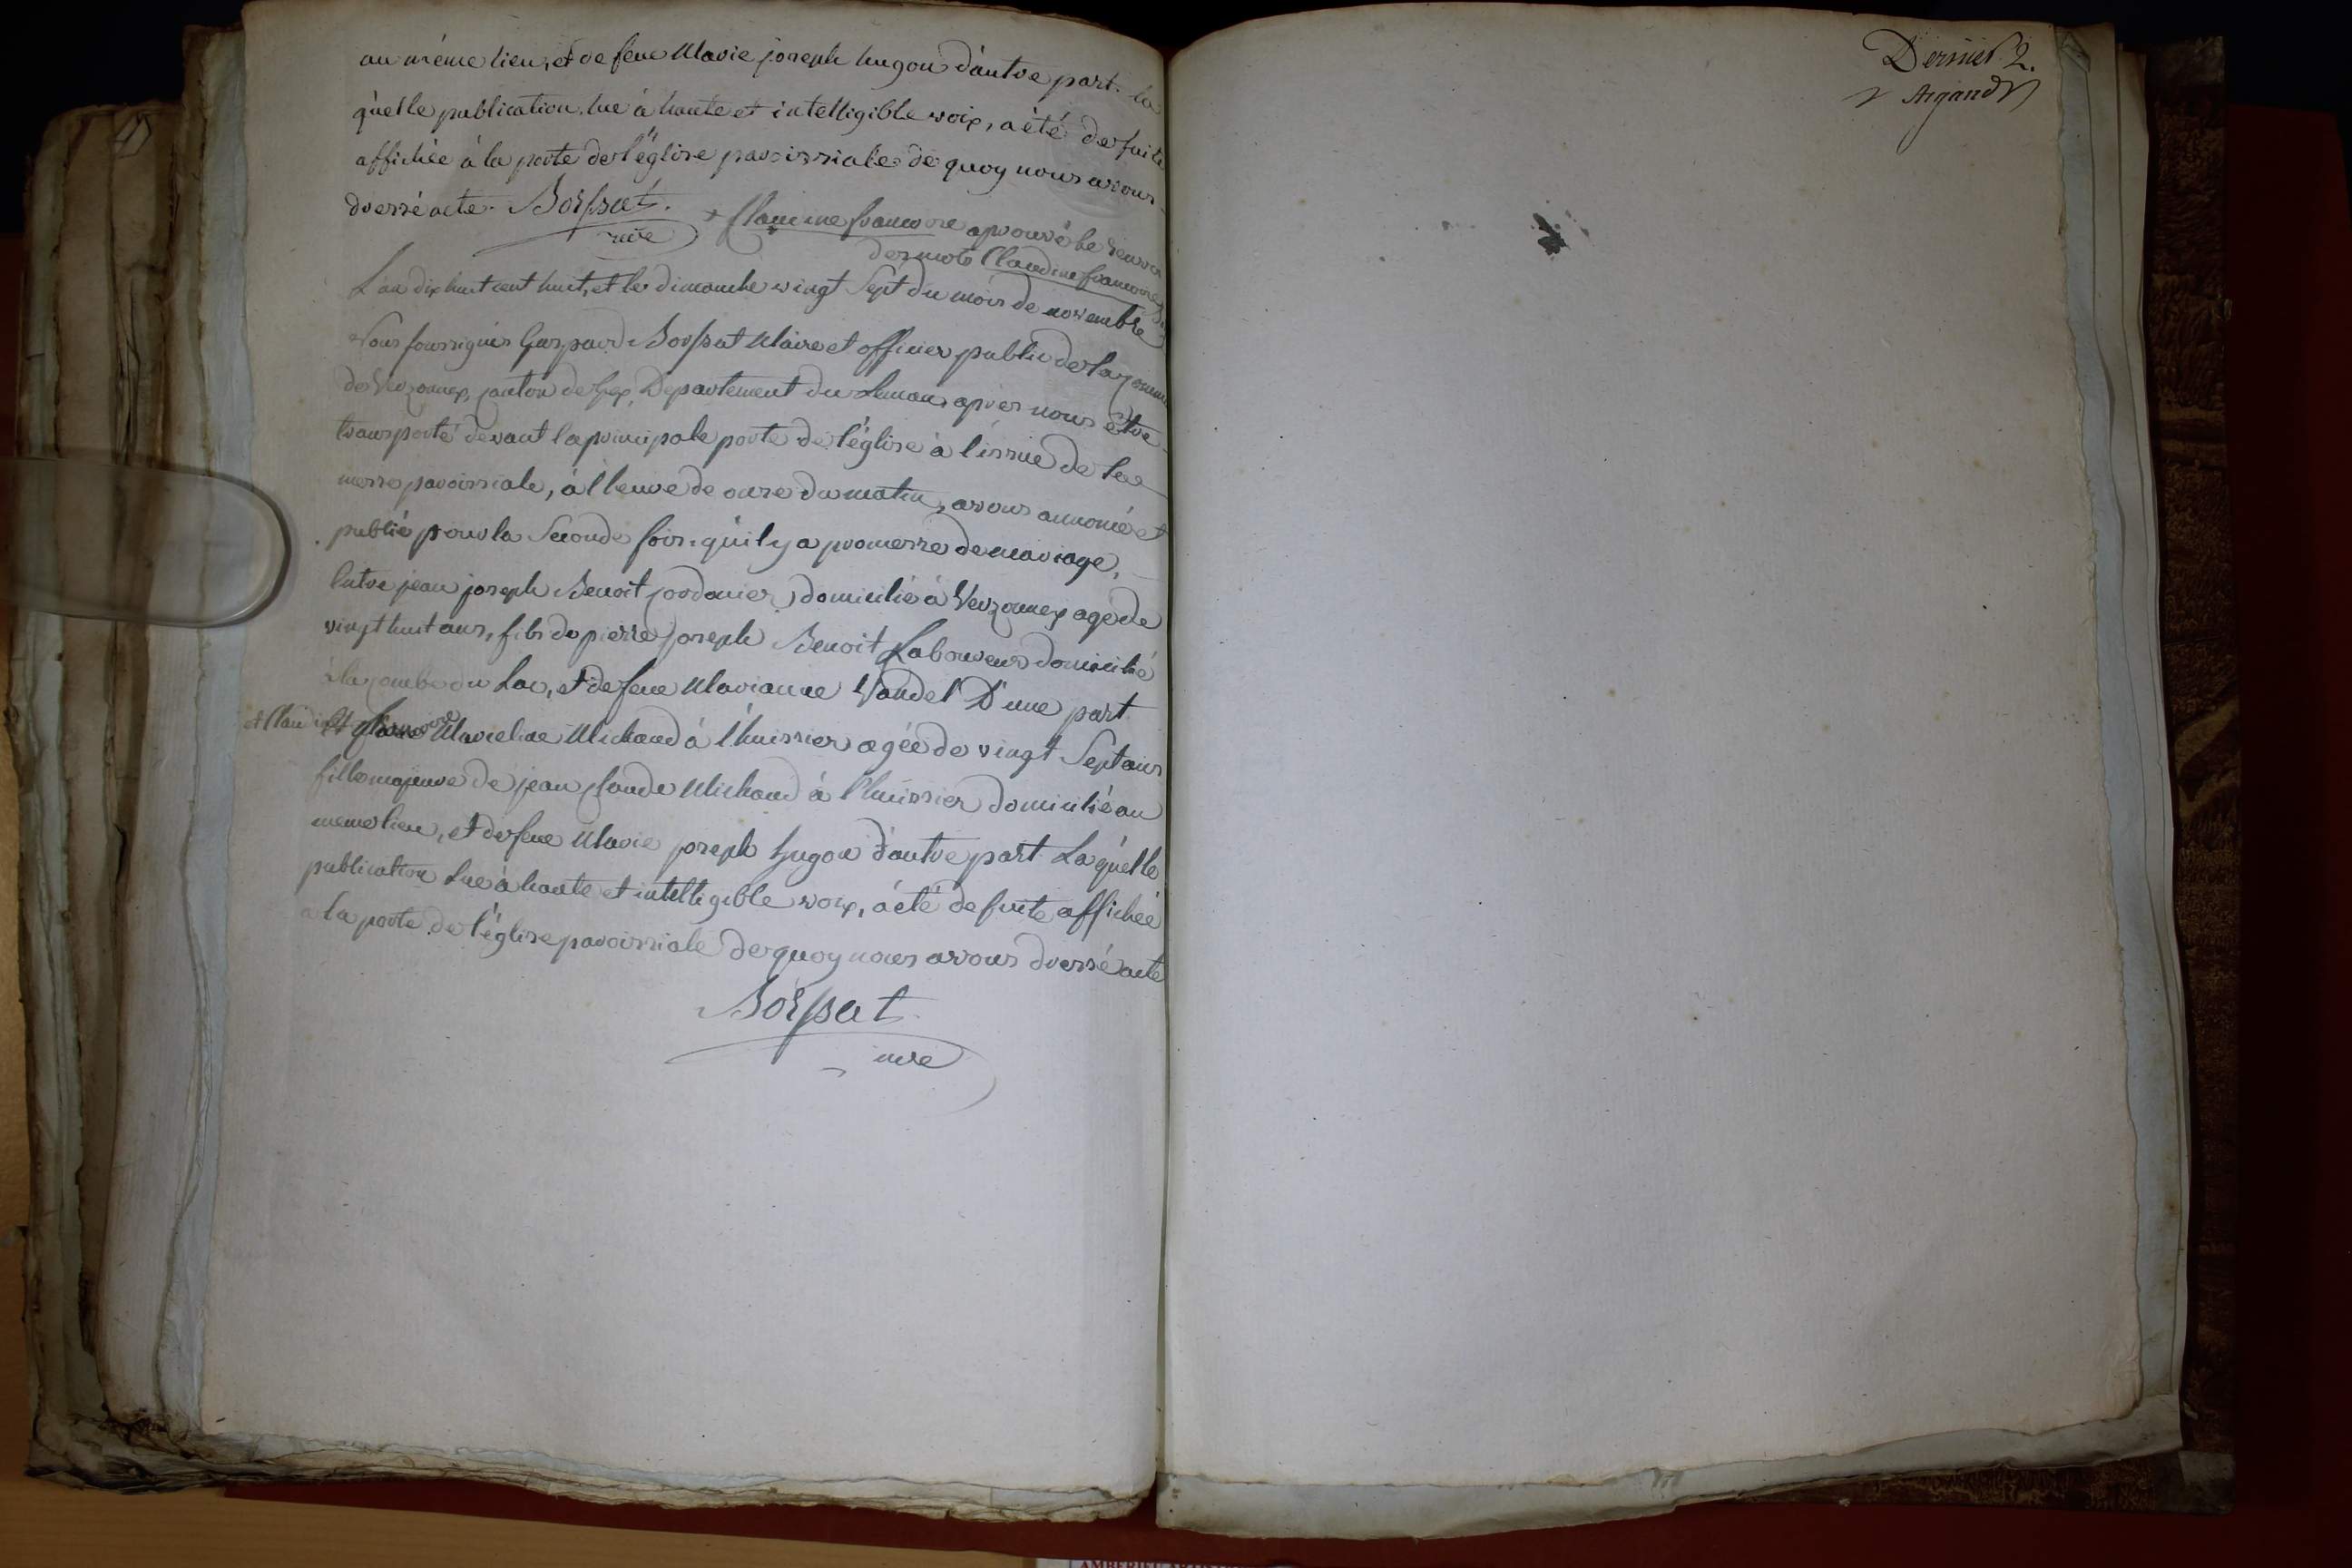 au même lieu, et de feue Marie joseph hugon d'autre part. la
quelle publication. lue à haute et intelligible voix, a été de suite
affichée à la porte de l'église paroissiale de quoy nous avons
dressé acte. Boissat.
mre + Claudine francoise aprouvé le renvoi
des mots Claudine francoise
L'an dix huit cent huit, et le dimanche vingt Sept du mois de novembre
Nous soussignés Gaspard Boissat Maire et officier public de la commune
de Vezonnex, canton de Gex, Departement du Leman, après nous être
transporté devant la principale porte de l'église à l'issue de la
messe paroissiale, à l'heure de onze du matin, avons annoncé et
publié pour la Seconde fois. qu'il y a promesse de mariage,
Entre jean joseph Benoit cordonier, domicilié à Vezonnex agé de
vingt huit ans, fils de pierre joseph Benoit Laboureur domicilié
à la combe du Lac, et de feue Marianne Vandel D'une part
+ Claudine francoise
Et Michaud à l'huissier agée de vingt Sept ans
fille majeure de jean claude Michaud à l'huissier domicilié au
meme lieu, et de feue Marie joseph hugon d'autre part Laquelle
publication Lue à haute et intelligible voix, a été de suite affichée
a la porte de l'église paroissiale de quoy nous avons dressé acte
Boissat
mre
Dernier 2.
Argand